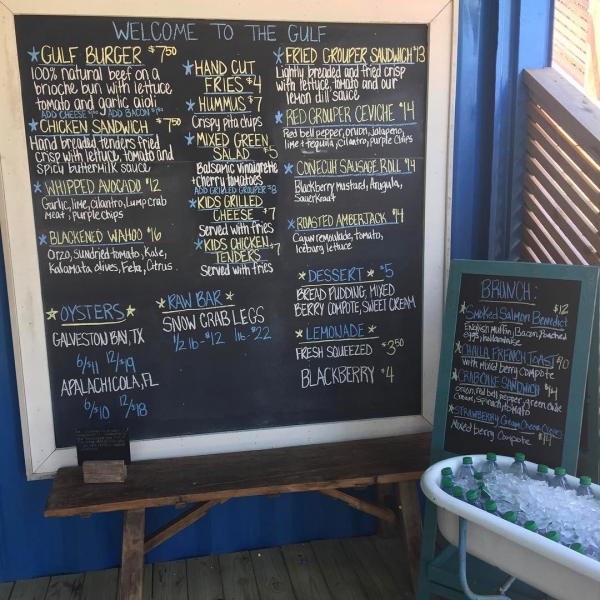 WELCOME TO THE GULF
GULF BURGER $7.50
100% natural beef on a
brioche bun with lettuce
tomato and garlic aioli.
CHICKEN SANDWICH $7.50
Hand breaded tenders fried
crisp with lettuce, tomato and
spicy buttermilk sauce
WHIPPED AVOCADO $12
Garlic, lime, cilantro, Lump crab
meat, purple chips
BLACKENED WAHOO $16
Orzo, Sundried tomato, Kale,
Kalamata olives, Feta, Citrus.
OYSTERS
GALVESTON BAY, TX
6/$11 12/$19
APALACHICOLA, FL
6/$10 12/$18
HAND CUT
FRIES $4
HUMMUS $7
Crispy pita chips
MIXED GREEN
SALAD $5
Balsamic vinaigrette
+ cherry tomatoes
ADD GRILLED GROUPER $8
KIDS GRILLED
CHEESE $7
Served with fries
KIDS CHICKEN
TENDERS $7
Served with fries
RAW BAR
SNOW CRAB LEGS
1/2 lb - $12 lb - $22
FRIED GROUPER SANDWICH $13
Lightly breaded and fried crisp
with lettuce, tomato and our
lemon dill sauce
RED GROUPER CEVICHE $14
Red bell pepper, onion, jalapeno,
lime + tequila, cilantro, purple chips
CONECUH SAUSAGE ROLL $14
Blackberry mustard, Arugula,
Sauerkraut
ROASTED AMBERJACK $14
Cajun remoulade, tomato,
Iceburg lettuce
DESSERT $5
BREAD PUDDING, MIXED
BERRY COMPOTE, SWEET CREAM
LEMONADE
FRESH SQUEEZED $3.50
BLACKBERRY $4
BRUNCH:
$12
Smoked Salmon Benedict
English Muffin, Bacon, Poached
eggs, hollandaise
CHALLA FRENCH TOAST $10
with mixed berry compote
CRAB CAKE SANDWICH $14
onion, red bell pepper, green chile
cream, spinach, tomato
STRAWBERRY Cream Cheese
Mixed berry Compote $14